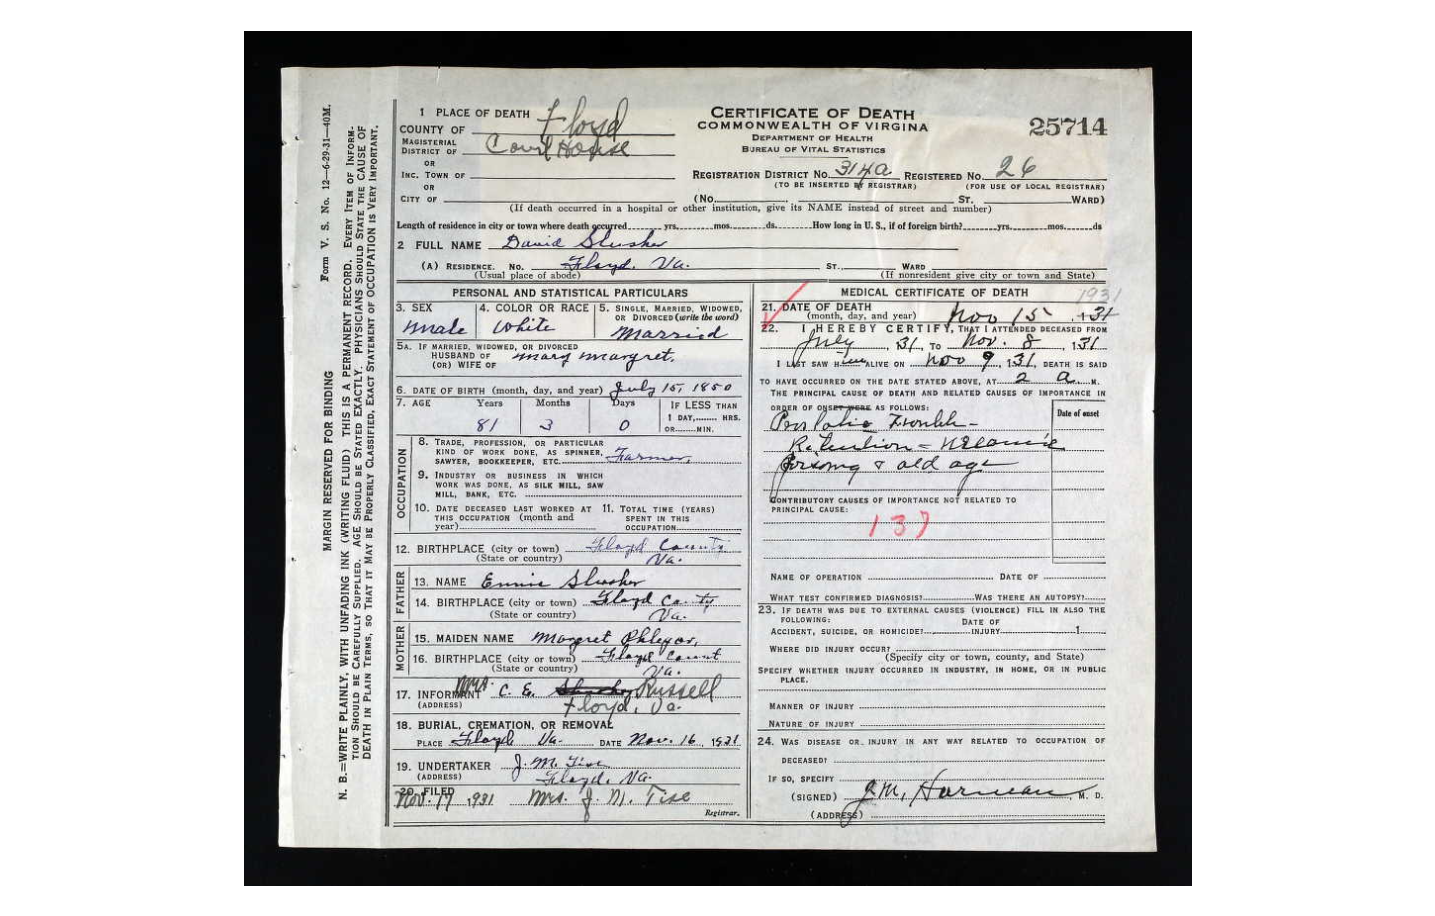 Form V. S. No. 12—6-29-31—40M.
MARGIN RESERVED FOR BINDING
N. B.—WRITE PLAINLY, WITH UNFADING INK (WRITING FLUID) THIS IS A PERMANENT RECORD. EVERY ITEM OF INFORM-
TION SHOULD BE CAREFULLY SUPPLIED. AGE SHOULD BE STATED EXACTLY. PHYSICIANS SHOULD STATE THE CAUSE OF
DEATH IN PLAIN TERMS, SO THAT IT MAY BE PROPERLY CLASSIFIED, EXACT STATEMENT OF OCCUPATION IS VERY IMPORTANT.
1 PLACE OF DEATH
COUNTY OF Floyd
MAGISTERIAL DISTRICT OF Court House
OR
INC. TOWN OF
OR
CITY OF
CERTIFICATE OF DEATH
COMMONWEALTH OF VIRGINIA
DEPARTMENT OF HEALTH
BUREAU OF VITAL STATISTICS
25714
REGISTRATION DISTRICT NO. 314a REGISTERED NO. 26
(TO BE INSERTED BY REGISTRAR) (FOR USE OF LOCAL REGISTRAR)
(No. ST. WARD)
(If death occurred in a hospital or other institution, give its NAME instead of street and number)
Length of residence in city or town where death occurred yrs. mos. ds. How long in U. S., if of foreign birth? yrs. mos. ds
2 FULL NAME David Slusher
(A) RESIDENCE. No. Floyd, Va. ST., WARD
(Usual place of abode) (If nonresident give city or town and State)
PERSONAL AND STATISTICAL PARTICULARS
3. SEX 4. COLOR OR RACE 5. SINGLE, MARRIED, WIDOWED,
OR DIVORCED (write the word)
male White Married
5A. IF MARRIED, WIDOWED, OR DIVORCED
HUSBAND OF
(OR) WIFE OF Mary Margret.
6. DATE OF BIRTH (month, day, and year) July 15, 1850
7. AGE Years Months Days IF LESS THAN
1 DAY, HRS.
OR MIN.
81 3 0
OCCUPATION
8. TRADE, PROFESSION, OR PARTICULAR
KIND OF WORK DONE, AS SPINNER,
SAWYER, BOOKKEEPER, ETC. Farmer,
9. INDUSTRY OR BUSINESS IN WHICH
WORK WAS DONE, AS SILK MILL, SAW
MILL, BANK, ETC.
10. DATE DECEASED LAST WORKED AT
THIS OCCUPATION (month and
year)
11. TOTAL TIME (YEARS)
SPENT IN THIS
OCCUPATION
12. BIRTHPLACE (city or town) Floyd County
(State or country) Va.
FATHER
13. NAME Slusher
14. BIRTHPLACE (city or town) Floyd County
(State or country) Va.
MOTHER
15. MAIDEN NAME Margret
16. BIRTHPLACE (city or town) Floyd Count
(State or country) Va.
17. INFORMANT Mrs. C. E. Russell
(ADDRESS) Floyd, Va.
18. BURIAL, CREMATION, OR REMOVAL
PLACE Floyd Va. DATE Nov. 16, 1931
19. UNDERTAKER J. M. Tise
(ADDRESS) Floyd, Va.
20. FILED Nov. 17 1931 Mrs. J. M. Tise
Registrar.
MEDICAL CERTIFICATE OF DEATH
1931
21. DATE OF DEATH
(month, day, and year) Nov 15, 131
22. I HEREBY CERTIFY, THAT I ATTENDED DECEASED FROM
July, 31, TO Nov. 8, 131
I LAST SAW HIM ALIVE ON Nov 9, 131, DEATH IS SAID
TO HAVE OCCURRED ON THE DATE STATED ABOVE, AT 2 a M.
THE PRINCIPAL CAUSE OF DEATH AND RELATED CAUSES OF IMPORTANCE IN
ORDER OF ONSET WERE AS FOLLOWS:
Date of onset
Trouble -
Retention -
& old age
CONTRIBUTORY CAUSES OF IMPORTANCE NOT RELATED TO
PRINCIPAL CAUSE:
137
NAME OF OPERATION DATE OF
WHAT TEST CONFIRMED DIAGNOSIS? WAS THERE AN AUTOPSY?
23. IF DEATH WAS DUE TO EXTERNAL CAUSES (VIOLENCE) FILL IN ALSO THE
FOLLOWING:
DATE OF
ACCIDENT, SUICIDE, OR HOMICIDE? INJURY 1
WHERE DID INJURY OCCUR?
(Specify city or town, county, and State)
SPECIFY WHETHER INJURY OCCURRED IN INDUSTRY, IN HOME, OR IN PUBLIC
PLACE.
MANNER OF INJURY
NATURE OF INJURY
24. WAS DISEASE OR INJURY IN ANY WAY RELATED TO OCCUPATION OF
DECEASED?
IF SO, SPECIFY
(SIGNED) J. M. Harman, M. D.
(ADDRESS)